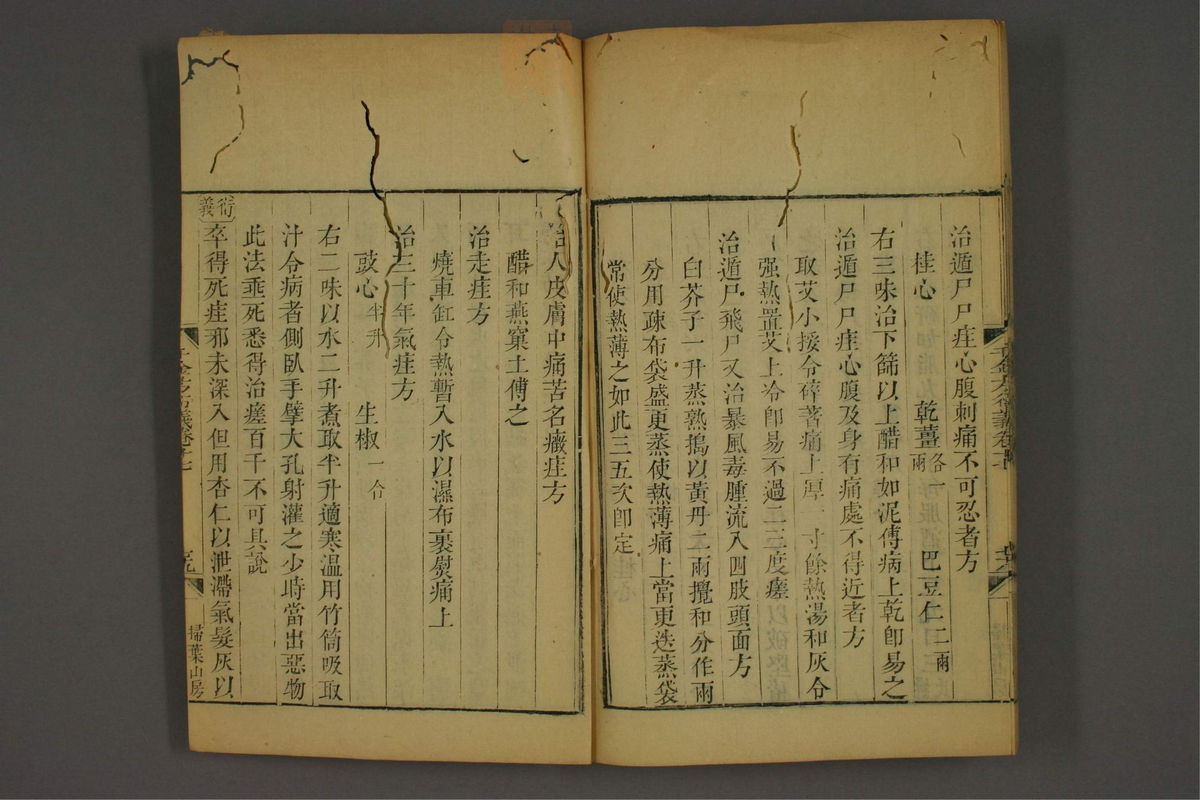 治遁尸尸疰心腹刺痛不可忍者方
桂心 乾薑各一兩 巴豆仁二兩
右三味治下篩以上醋和如泥傅病上乾卽易之
治遁尸尸疰心腹及身有痛處不得近者方
取艾小挼令碎著痛上厚一寸餘熱湯和灰令
强熱置艾上冷卽易不過二三度瘥
治遁尸飛尸又治暴風毒腫流入四肢頭面方
白芥子一升蒸熟搗以黃丹二兩攪和分作兩
分用疎布袋盛更蒸使熱薄痛上當更迭蒸袋
常使熱薄之如此三五次卽定
治人皮膚中痛苦名癥疰方
醋和燕窠土傅之
治走疰方
燒車缸令熱暫入水以濕布裹熨痛上
治三十年氣疰方
豉心半升 生椒一合
右二味以水二升煮取半升適寒温用竹筒吸取
汁令病者側臥手擘大孔射灌之少時當出惡物
此法垂死悉得治瘥百千不可具說
衍義
卒得死疰邪未深入但用杏仁以泄滯氣髮灰以
掃葉山房